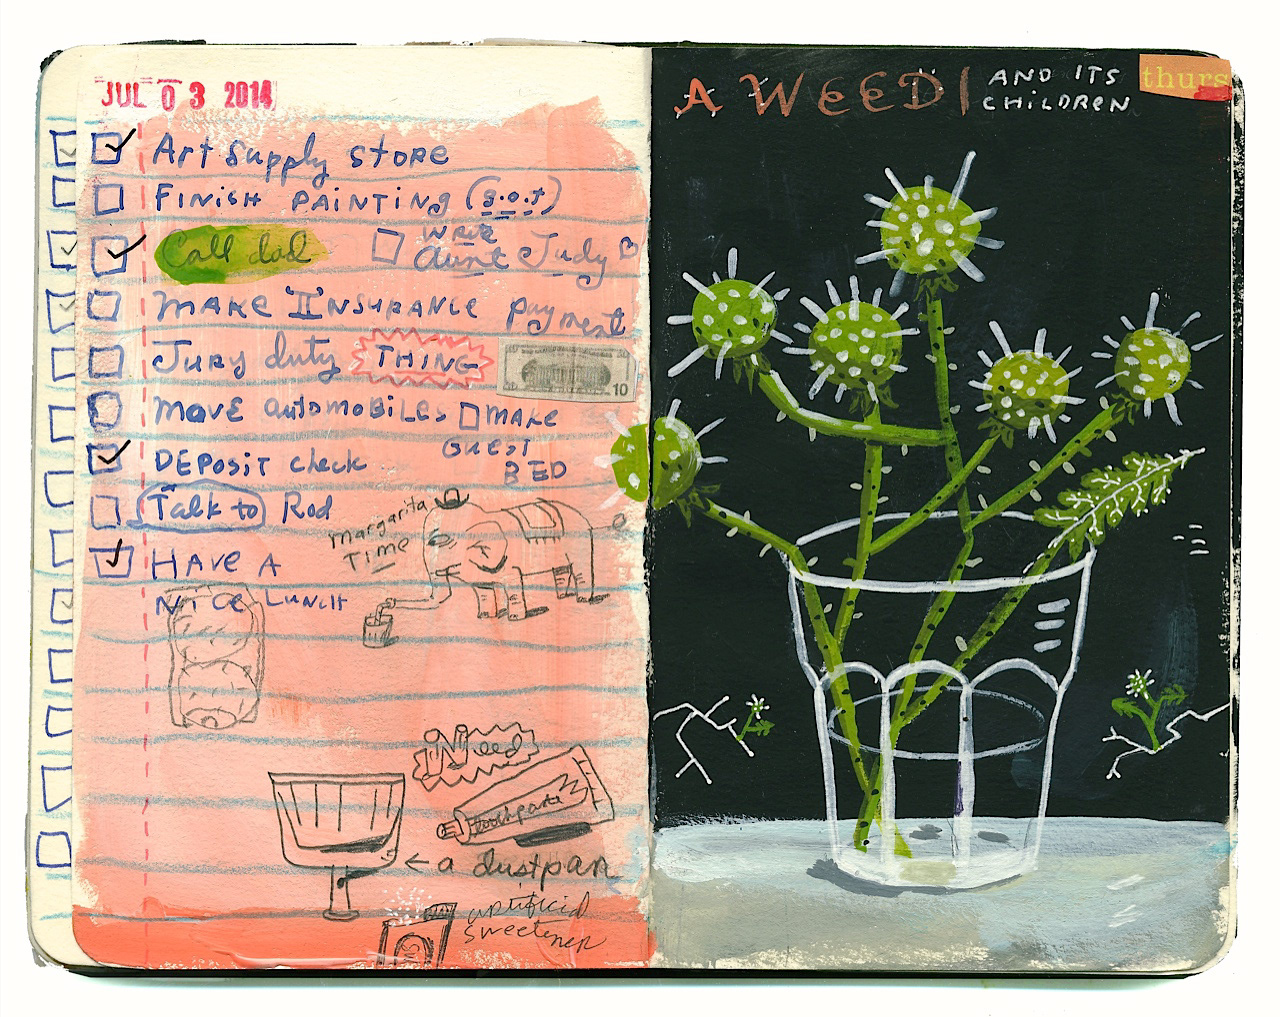 JUL 03 2014
Art Supply store
FINISH PAINTING (g.o.t)
Call dad
WRITE
Aunt Judy B
MAKE INSURANCE payment
Jury duty THING
10
MOVE AUTOMOBILES
MAKE
GUEST
BED
DEPOSIT check
Talk to Rod
HAVE A
NICE LUNCH
margarita
TIME
Need
toothpaste
← a dustpan
artificial
sweetener
A WEED
AND ITS
CHILDREN
thurs